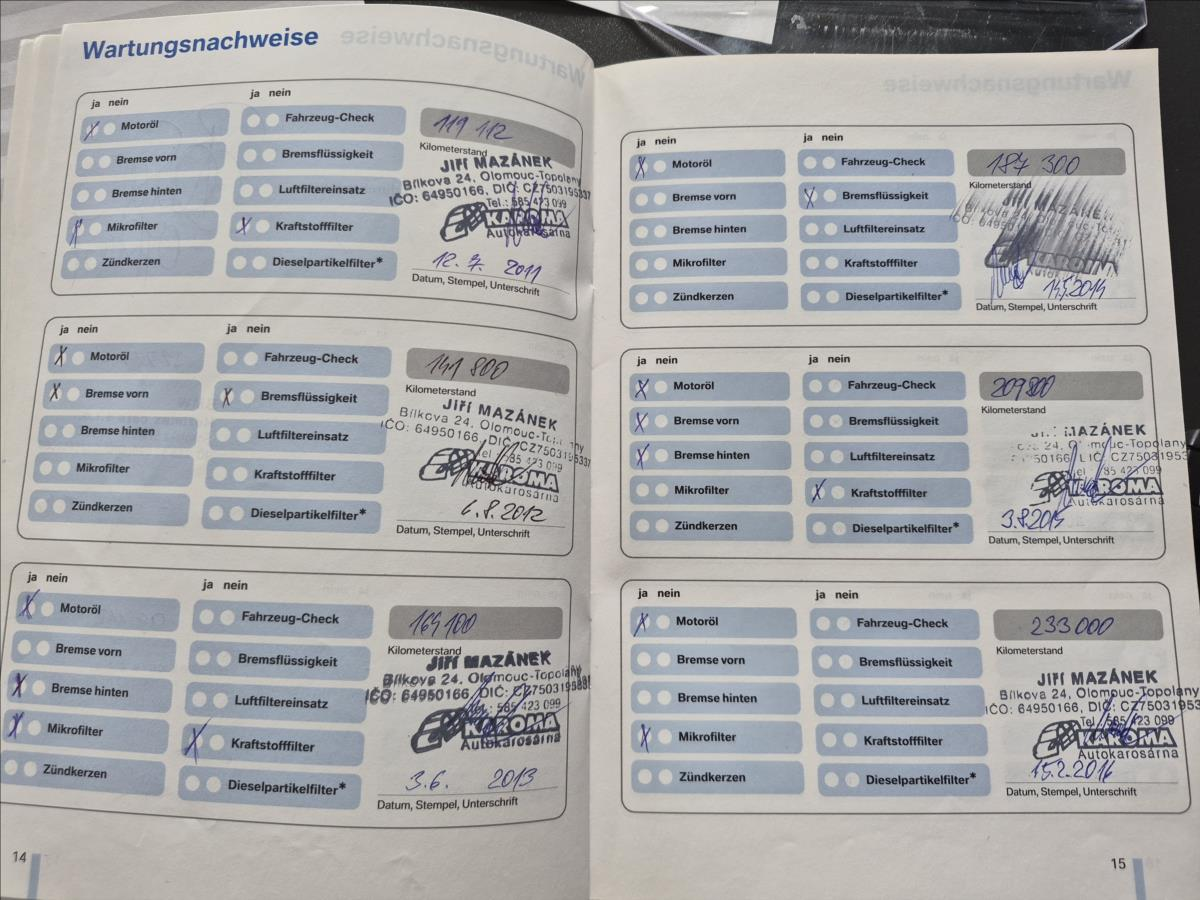 Wartungsnachweise
ja nein
ja nein
X Motoröl
Fahrzeug-Check
119 112
Bremse vorn
Bremsflüssigkeit
Kilometerstand
Bremse hinten
Luftfiltereinsatz
JIŘÍ MAZÁNEK
Bílkova 24, Olomouc-Topolany
IČO: 64950166, DIČ: CZ7503195337
Tel.: 585 423 099
X Mikrofilter
X Kraftstofffilter
KAROMA
Autokarosárna
Zündkerzen
Dieselpartikelfilter*
12. 7. 2011
Datum, Stempel, Unterschrift
ja nein
ja nein
X Motoröl
Fahrzeug-Check
141 800
X Bremse vorn
X Bremsflüssigkeit
Kilometerstand
Bremse hinten
Luftfiltereinsatz
JIŘÍ MAZÁNEK
Bílkova 24, Olomouc-Topolany
IČO: 64950166, DIČ: CZ7503195337
Tel.: 585 423 099
Mikrofilter
Kraftstofffilter
KAROMA
Autokarosárna
Zündkerzen
Dieselpartikelfilter*
6.8.2012
Datum, Stempel, Unterschrift
ja nein
ja nein
X Motoröl
Fahrzeug-Check
164 100
Bremse vorn
Bremsflüssigkeit
Kilometerstand
X Bremse hinten
Luftfiltereinsatz
JIŘÍ MAZÁNEK
Bílkova 24, Olomouc-Topolany
IČO: 64950166, DIČ: CZ7503195337
Tel.: 585 423 099
X Mikrofilter
X Kraftstofffilter
KAROMA
Autokarosárna
Zündkerzen
Dieselpartikelfilter*
3.6. 2013
Datum, Stempel, Unterschrift
14
ja nein
ja nein
X Motoröl
Fahrzeug-Check
187 300
Bremse vorn
X Bremsflüssigkeit
Kilometerstand
Bremse hinten
Luftfiltereinsatz
JIŘÍ MAZÁNEK
Bílkova 24,
IČO: 64950166
Mikrofilter
Kraftstofffilter
KAROMA
Autokarosárna
Zündkerzen
Dieselpartikelfilter*
Datum, Stempel, Unterschrift
ja nein
ja nein
X Motoröl
Fahrzeug-Check
X Bremse vorn
Bremsflüssigkeit
Kilometerstand
X Bremse hinten
Luftfiltereinsatz
MAZÁNEK
24, Olomouc-Topolany
50166, DIČ: CZ75031953
423 099
Mikrofilter
X Kraftstofffilter
KAROMA
Autokarosárna
Zündkerzen
Dieselpartikelfilter*
3.8.2015
Datum, Stempel, Unterschrift
ja nein
ja nein
X Motoröl
Fahrzeug-Check
233 000
Bremse vorn
Bremsflüssigkeit
Kilometerstand
Bremse hinten
Luftfiltereinsatz
JIŘÍ MAZÁNEK
Bílkova 24, Olomouc-Topolany
IČO: 64950166, DIČ: CZ75031953
Tel.: 585 423 099
X Mikrofilter
Kraftstofffilter
KAROMA
Autokarosárna
Zündkerzen
Dieselpartikelfilter*
15.2.2016
Datum, Stempel, Unterschrift
15